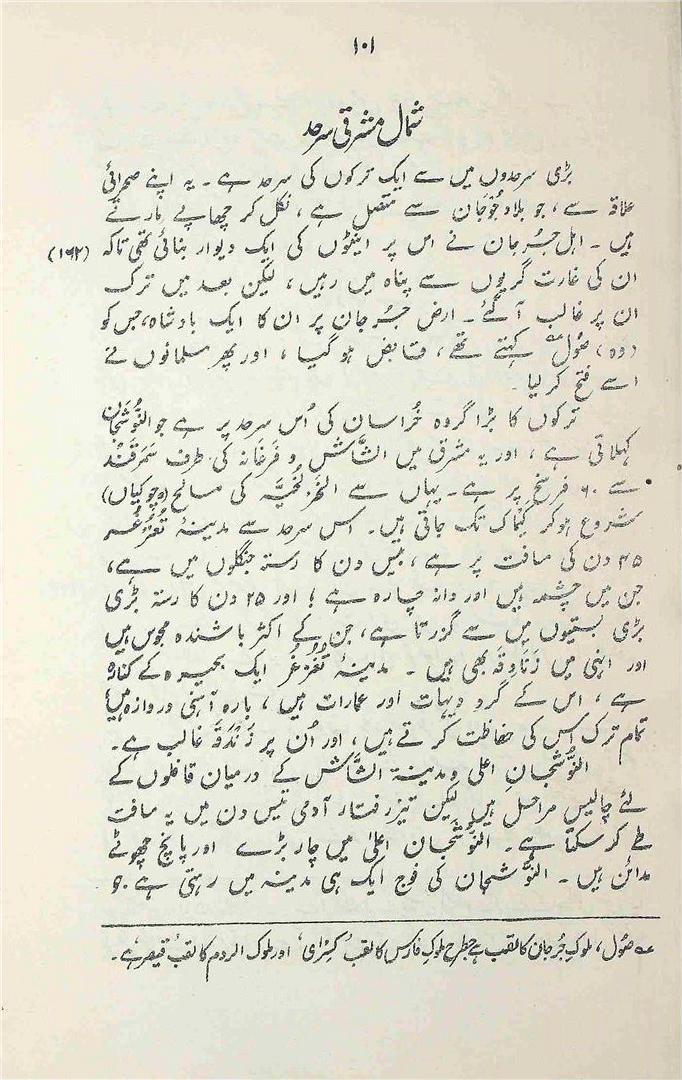 ۱۰۱
شمال مشرقی سرحد
بڑی سرحدوں میں سے ایک ترکوں کی سرحد ہے ۔ یہ اپنے صحرائی
علاقہ سے ، جو بلاد جُرجَان سے متصل ہے ، نکل کر چھاپے مارتے
ہیں ۔ اہل جُرجان نے اس پر اینٹوں کی ایک دیوار بنائی تھی تاکہ (۱۶۲)
ان کی غارت گریوں سے پناہ میں رہیں ، لیکن بعد میں ترک
ان پر غالب آ گئے ۔ ارض جُرجان پر ان کا ایک بادشاہ ، جس کو
(وہ) صُول ؎ کہتے تھے ، قابض ہو گیا ، اور پھر مسلمانوں نے
اسے فتح کر لیا ۔
ترکوں کا بڑا گروہ خُراسان کی اُس سرحد پر ہے جو النُّوشَجَان
کہلاتی ہے ، اور یہ مشرق میں الشَّاش و فَرغَانہ کی طرف سَمَرقَند
سے ۶۰ فرسخ پر ہے ۔ یہاں سے الخَرلُخیَّہ کی مسالح (چوکیاں)
شروع ہو کر کیماک تک جاتی ہیں ۔ اس سرحد سے مدینۂ تُغُزغُر
۴۵ دن کی مسافت پر ہے ، بیس دن کا رستہ جنگلوں میں ہے ،
جن میں چشمے ہیں اور دانہ چارہ ہے ! اور ۲۵ دن کا رستہ بڑی
بڑی بستیوں میں سے گزرتا ہے ، جن کے اکثر باشندہ مجوس ہیں
اور انہی میں زَنَادِقَہ بھی ہیں ۔ مدینۂ تُغُزغُر ایک بحیرہ کے کنارہ
ہے ، اس کے گرد دیہات اور عمارات ہیں ، بارہ آہنی دروازہ ہیں
تمام ترک اس کی حفاظت کرتے ہیں ، اور اُن پر زَندَقَہ غالب ہے ۔
النُّوشَجان اعلی و مدینۃ الشَّاش کے درمیان قافلوں کے
لئے چالیس مراحل ہیں لیکن تیز رفتار آدمی تیس دن میں یہ مسافت
طے کر سکتا ہے ۔ النُّوشَجان اعلیٰ میں چار بڑے اور پانچ چھوٹے
مدائن ہیں ۔ النُّوشَجان کی فوج ایک ہی مدینہ میں رہتی ہے ۔
؎ صُول ، ملوک جُرجان کا لقب ہے جسطرح ملوک فارس کا لقب 'کِسرٰی' اور ملوک الروم کا لقب 'قیصر' ہے ۔